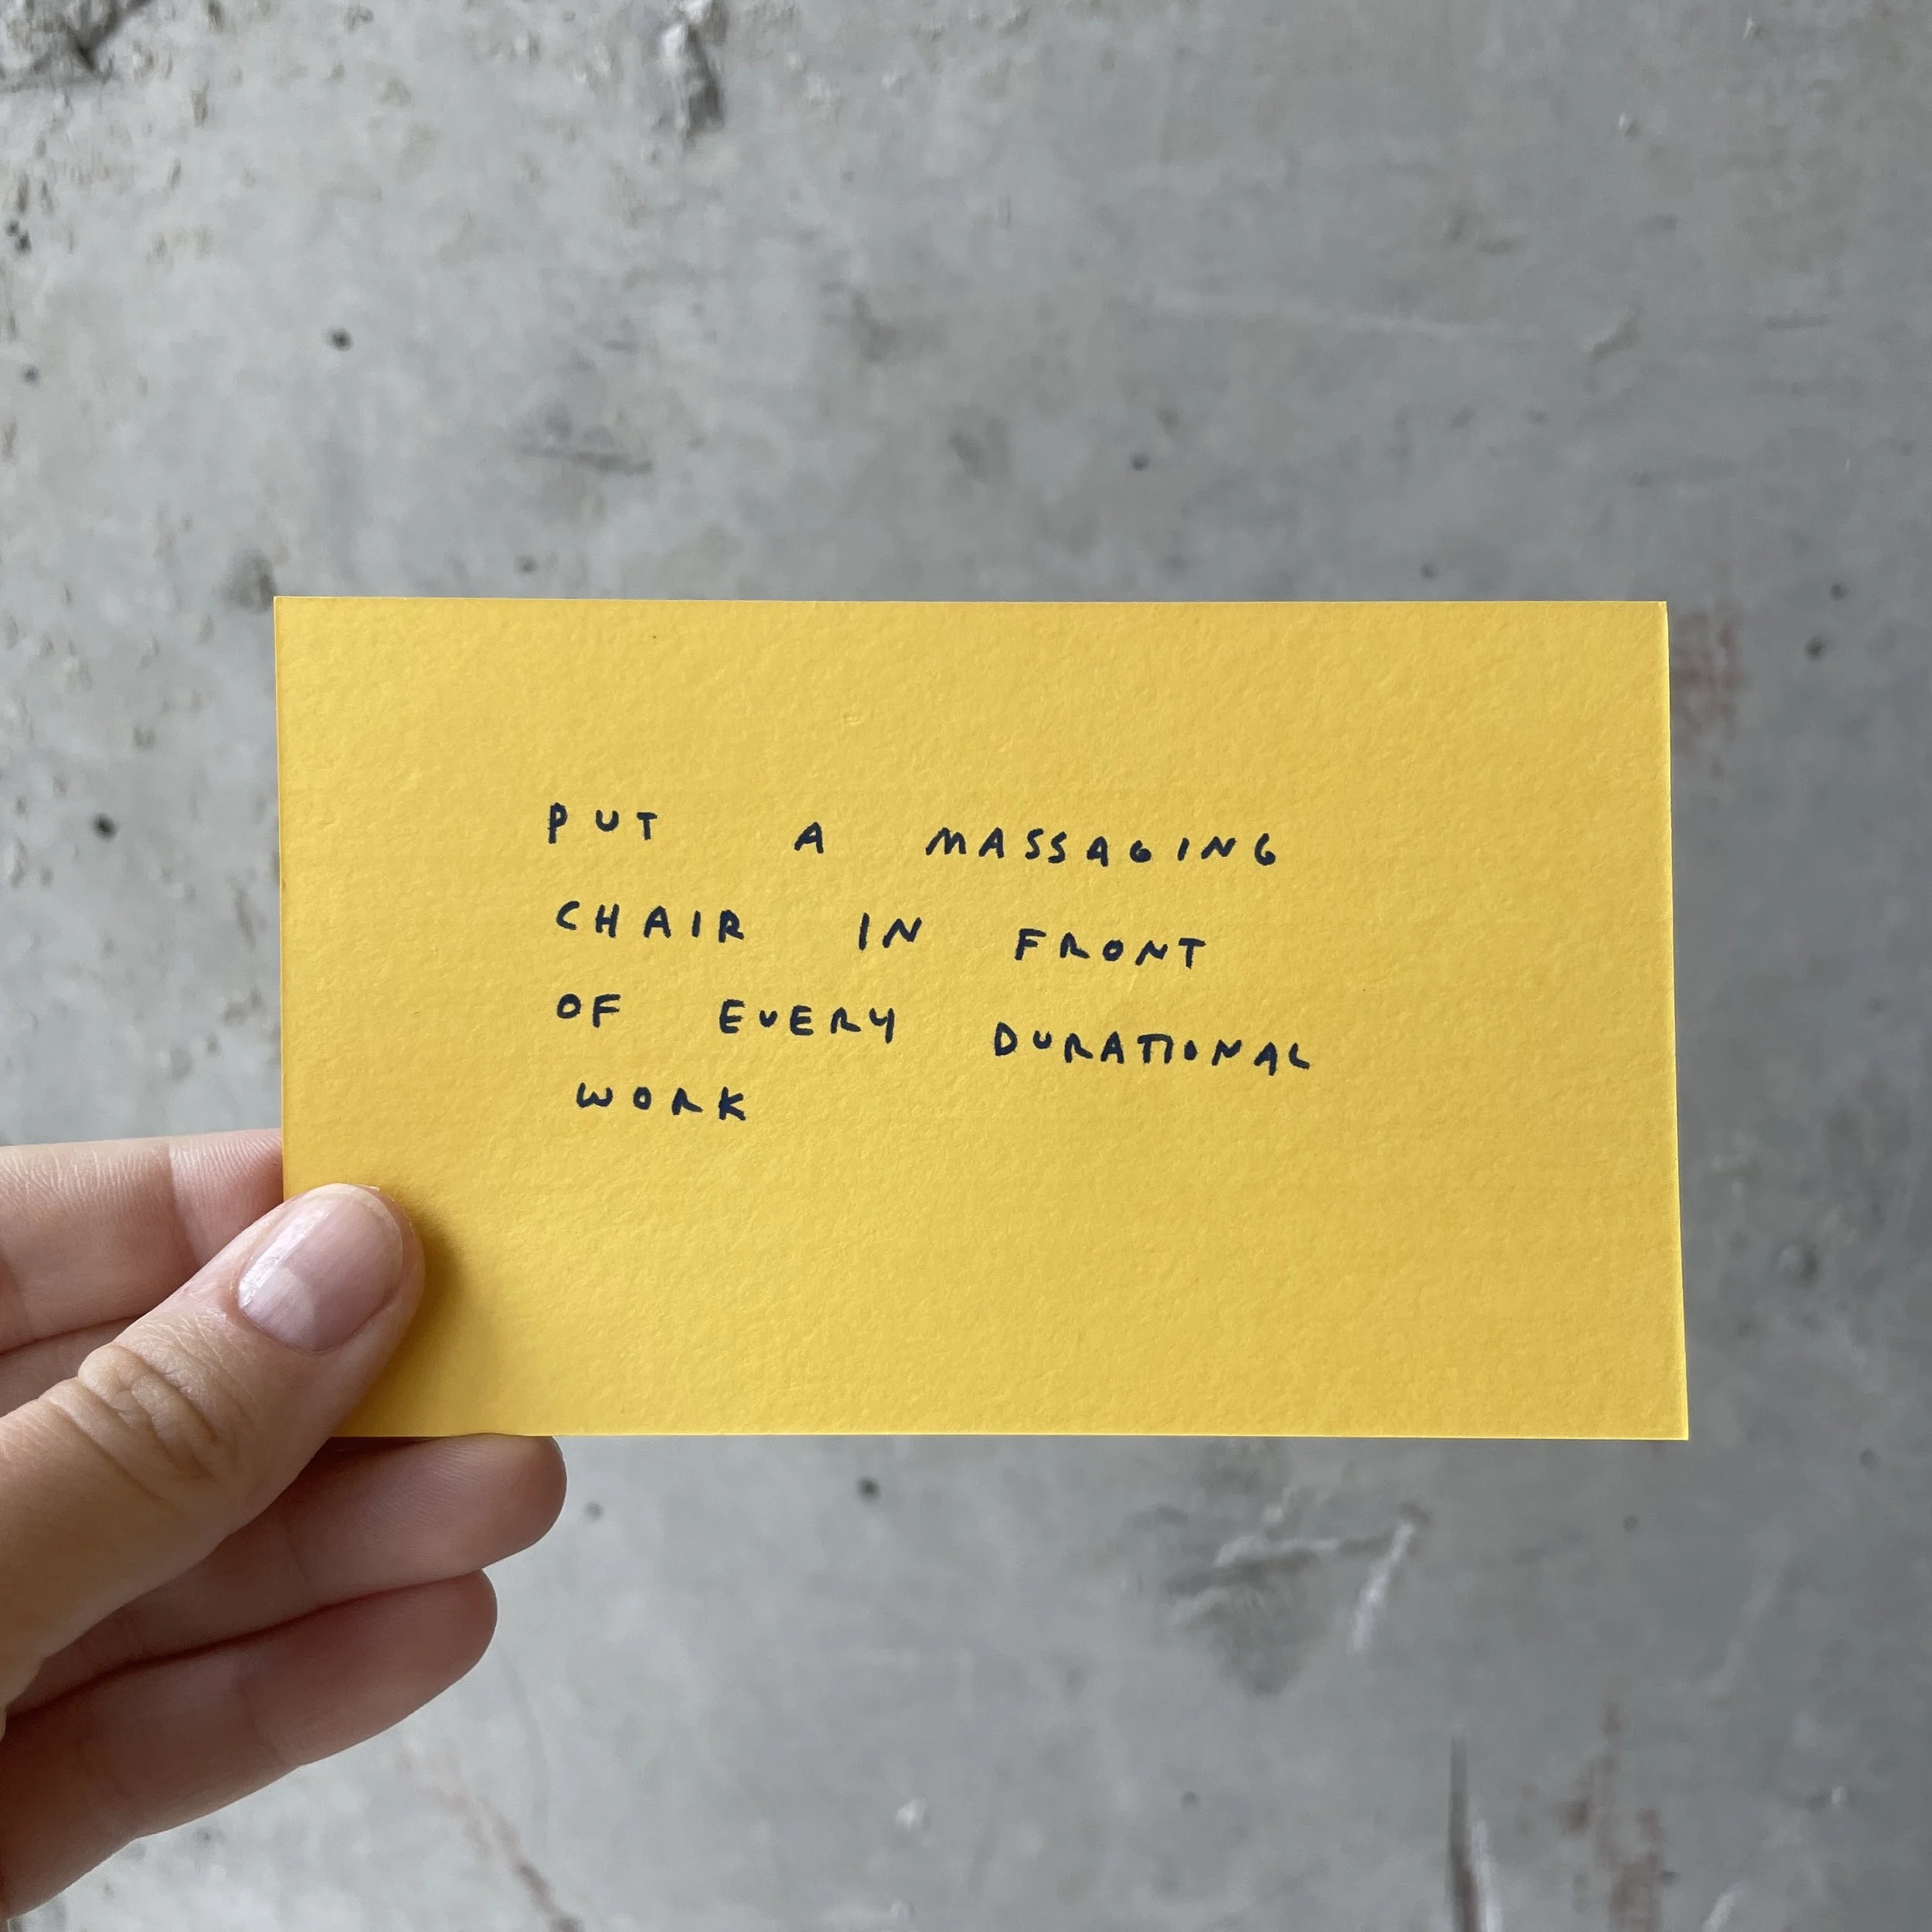 PUT A MASSAGING
CHAIR IN FRONT
OF EVERY DURATIONAL
WORK